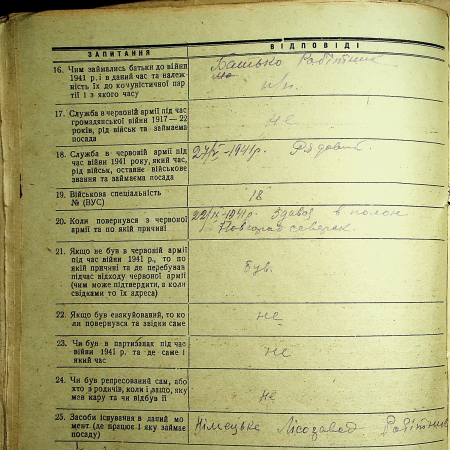 ЗАПИТАННЯ
ВІДПОВІДІ
16. Чим займались батьки до війни
1941 р. і в даний час та належ-
ність їх до комуністичної пар-
тії і з якого часу
Батько Робітник
н/п.
17. Служба в червоній армії під час
громадянської війни 1917—22
років, рід військ та займаєма
посада
не
18. Служба в червоній армії під
час війни 1941 року, який час,
рід військ, останнє військове
звання та займаєма посада
-1941р. Рядовий.
19. Військова спеціальність
№ (ВУС)
18
20. Коли повернувся з червоної
армії та по якій причині
-1941р. Здався в полон
Новгород северск.
21. Якщо не був в червоній армії
під час війни 1941 р., то по
якій причині та де перебував
підчас відходу червоної армії
(чим може підтвердити, а коли
свідками то їх адреса)
Був.
22. Якщо був евакуйований, то ко-
ли повернувся та звідки саме
не
23. Чи був в партизанах під час
війни 1941 р. та де саме і
який час
не
24. Чи був репресований сам, або
хто з родичів, коли і защо, яку
мав кару та чи відбув її
не
25. Засоби існування в даний мо-
мент (де працює і яку займає
посаду)
Німецьке Лісозавод Робітник